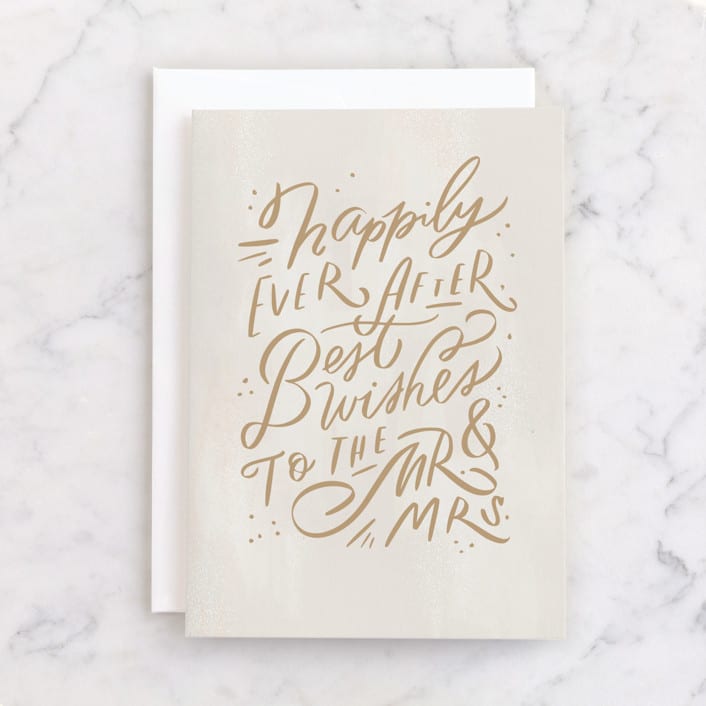 happily
EVER AFTER
Best
wishes
TO THE MR. &
MRS.